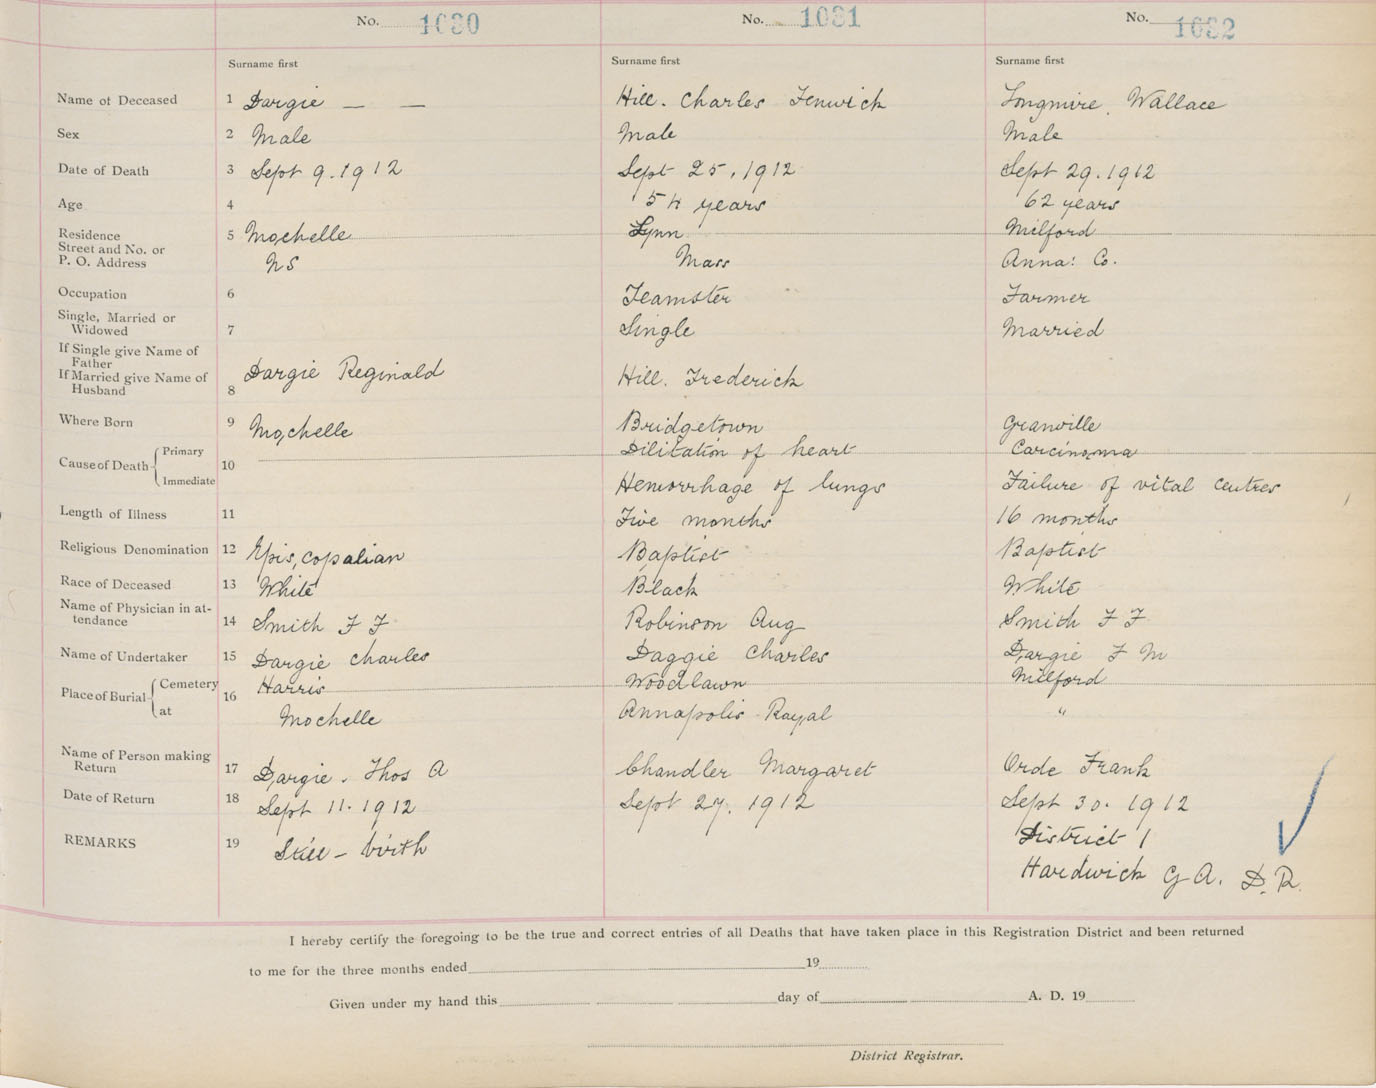 No. 1030 No. 1031 No. 1032
Surname first Surname first Surname first
Name of Deceased 1 Dargie — — Hill. Charles Fenwick Longmire, Wallace
Sex 2 Male Male Male
Date of Death 3 Sept 9. 1912 Sept 25, 1912 Sept 29. 1912
Age 4 54 years 62 years
Residence 5 Mochelle Lynn Milford
Street and No. or
P. O. Address NS Mass Anna: Co.
Occupation 6 Teamster Farmer
Single, Married or
Widowed 7 Single Married
If Single give Name of
Father
If Married give Name of Dargie Reginald Hill. Frederick
Husband 8
Where Born 9 Mochelle Bridgetown Granville
Cause of Death Primary 10 Dilitation of heart Carcinoma
Immediate Hemorrhage of lungs Failure of vital centres
Length of Illness 11 Five months 16 months
Religious Denomination 12 Episcopalian Baptist Baptist
Race of Deceased 13 White Black White
Name of Physician in at-
tendance 14 Smith F F Robinson Aug Smith F F
Name of Undertaker 15 Dargie Charles Daggie Charles Dargie F M
Place of Burial Cemetery 16 Harris Woodlawn Milford
at Mochelle Annapolis Royal "
Name of Person making
Return 17 Dargie. Thos A Chandler Margaret Orde Frank
Date of Return 18 Sept 11. 1912 Sept 27. 1912 Sept 30. 1912
REMARKS 19 Still - birth District 1
Hardwick G A. D.R.
I hereby certify the foregoing to be the true and correct entries of all Deaths that have taken place in this Registration District and been returned
to me for the three months ended 19
Given under my hand this day of A. D. 19
District Registrar.